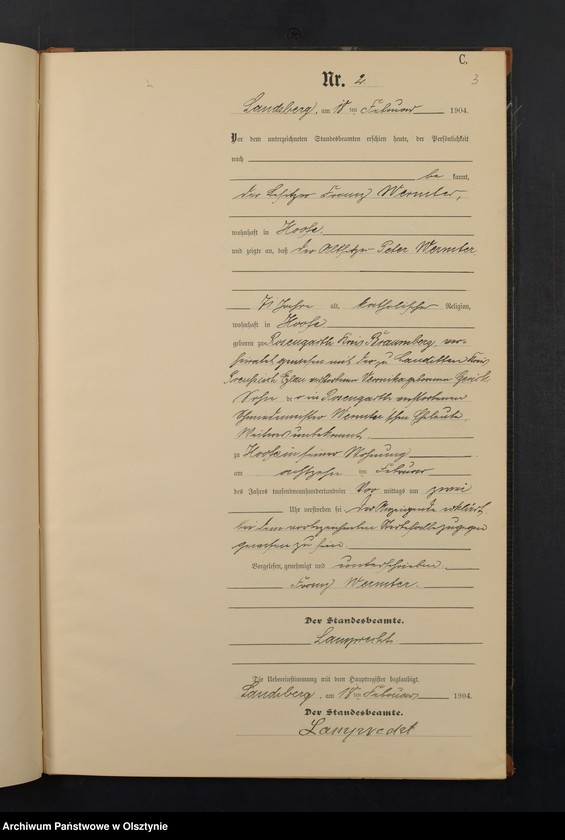 C.
Nr. 2.
3
Landsberg, am 18ten Februar 1904.
Vor dem unterzeichneten Standesbeamten erschien heute, der Persönlichkeit
nach
be kannt,
der Besitzer Franz Wermter,
wohnhaft in Hoofe
und zeigte an, daß der Altsitzer Peter Wermter
71 Jahre alt, katholischer Religion,
wohnhaft in Hoofe
geboren zu Rosengarth Kreis Braunsberg, ver-
heiratet gewesen mit der zu Landsberg Kreis
Preußisch Eylau verstorbenen Veronika geborenen
Sohn der in Rosengarth verstorbenen
Schmiedemeister Wermter'schen Eheleute.
Weiteres unbekannt.
zu Hoofe in seiner Wohnung
am achtzehn ten Februar
des Jahres tausendneunhundertundvier Vor mittags um zwei
Uhr verstorben sei. Der Anzeigende erklärt,
bei dem vorbezeichneten Sterbefalle zugegen
gewesen zu sein.
Vorgelesen, genehmigt und unterschrieben
Franz Wermter.
Der Standesbeamte.
Lamprecht
Die Uebereinstimmung mit dem Hauptregister beglaubigt.
Landsberg, am 18ten Februar 1904.
Der Standesbeamte.
Lamprecht
Archiwum Państwowe w Olsztynie